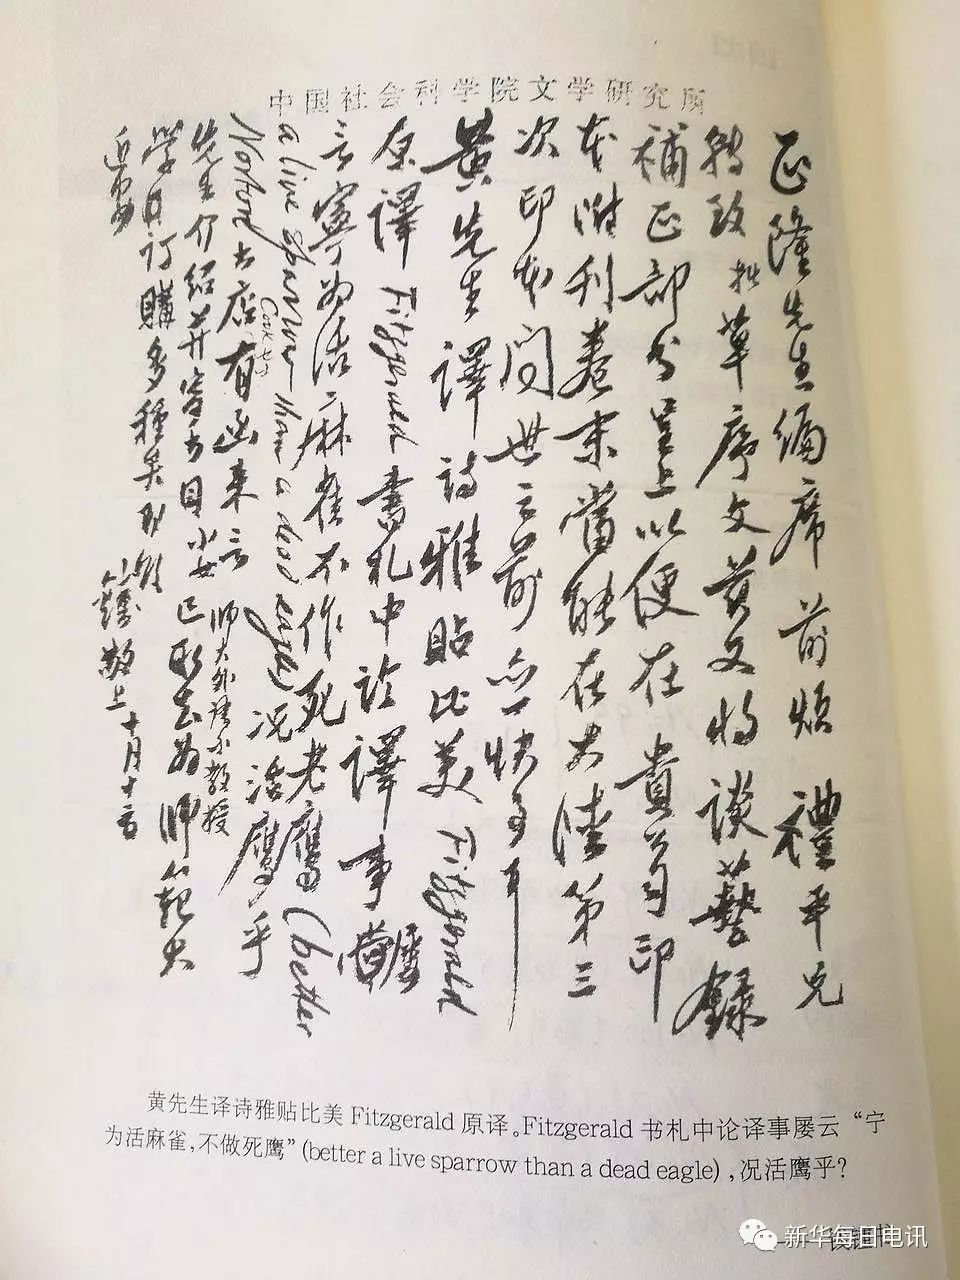 中国社会科学院文学研究所
正隆先生缅席 前烦 禮平兄
转致拙草序文英文将談藝錄
補正部分呈上以便在 貴萄印
本附刊卷末當能在大陸第三
次印本问世之前亦一快事
黄先生譯詩雅贴比美 Fitzgerald
原譯 Fitzgerald 書札中论譯事屢
云寧为活麻雀不作死老鹰 (better
a live sparrow than a dead eagle) 况活鹰乎
Norton 书店有函来云 师大外语系教授
先生介绍并寄书目 小女已取去为师范大
学订購多種矣 即颂
近安 錢 敬上 十月十二日
黄先生译诗雅贴比美 Fitzgerald 原译。Fitzgerald 书札中论译事屡云“宁
为活麻雀,不做死鹰”(better a live sparrow than a dead eagle),况活鹰乎?
新华每日电讯